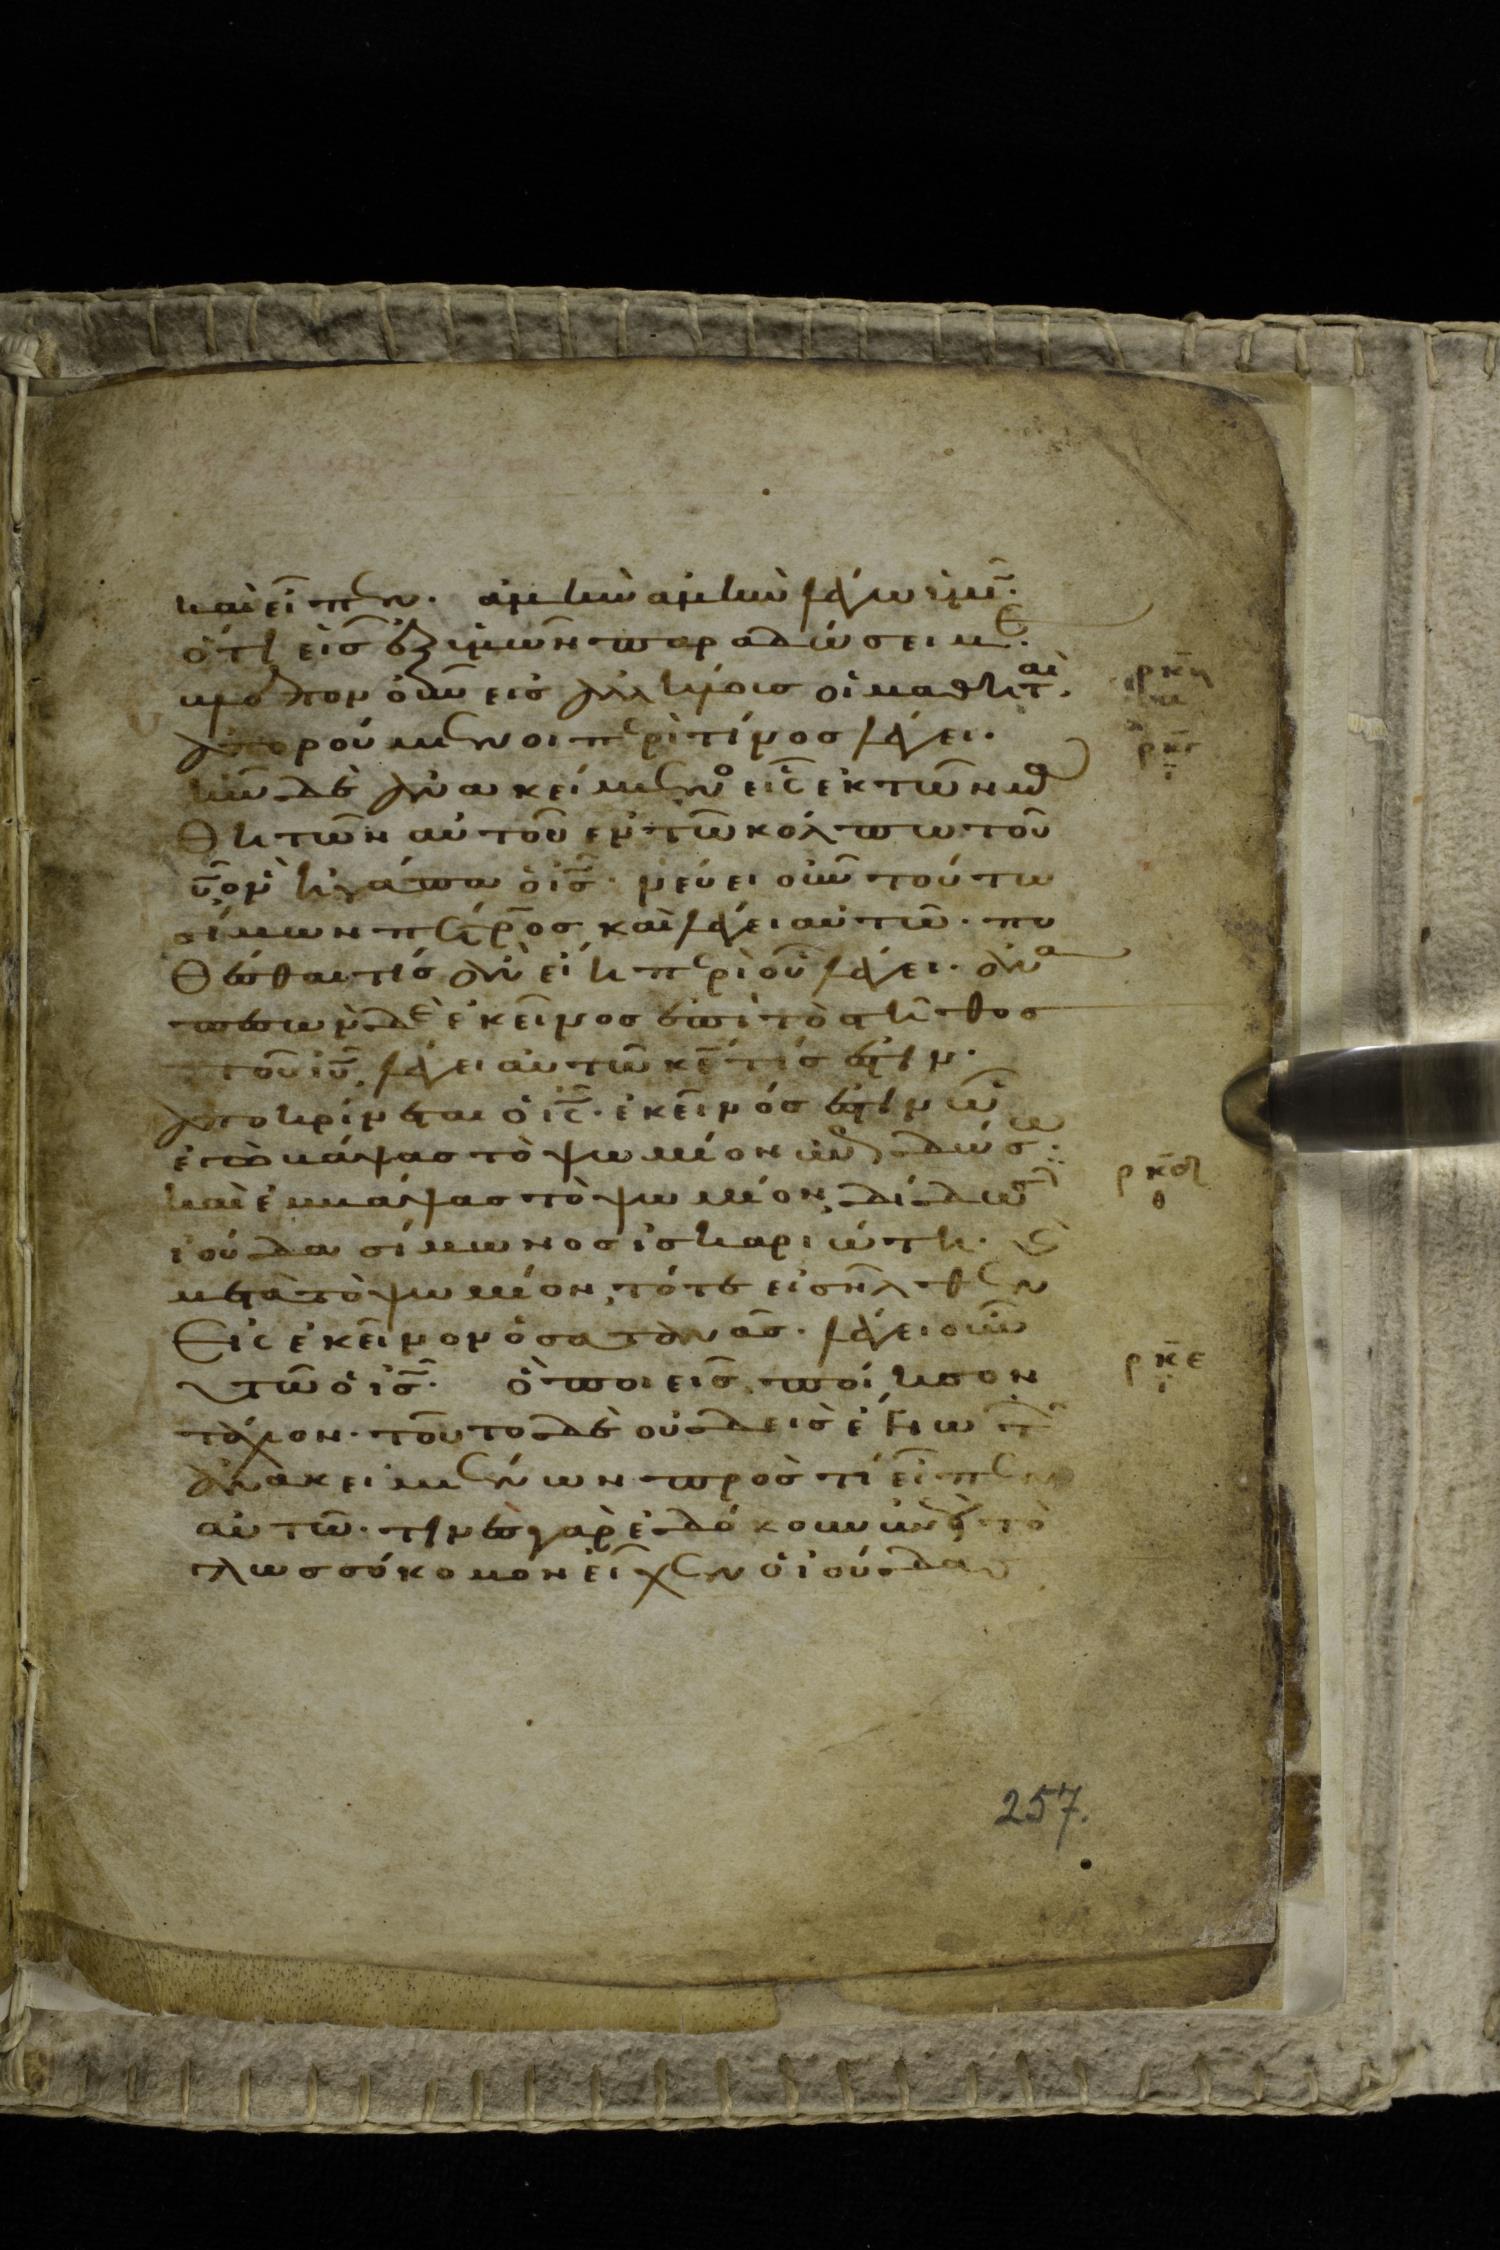 καὶ εἶπεν. ἀμὴν ἀμὴν λέγω ὑμῖν.
ὅτι εἷς ἐξ ὑμῶν παραδώσει με.
ἔβλεπον οὖν εἰς ἀλλήλους οἱ μαθηταὶ.
ἀπορούμενοι περὶ τίνος λέγει.
ἦν δὲ ἀνακείμενος εἷς ἐκ τῶν μα
θητῶν αὐτοῦ ἐν τῶ κόλπω τοῦ
ιῦ ὃν ἠγάπα ὁ ις. νεύει οὖν τούτω
σίμων πέτρος καὶ λέγει αὐτῶ. πυ
θέσθαι τίς ἂν εἴη περὶ οὗ λέγει. ἀνα
πεσὼν δὲ ἐκεῖνος ἐπὶ τὸ στῆθος
τοῦ ιῦ, λέγει αὐτῶ κε τίς ἐστιν.
ἀποκρίνεται ὁ ις. ἐκεῖνός ἐστιν ὧ
ἐγὼ βάψας τὸ ψωμίον ἐπιδώσω.
καὶ ἐμβάψας τὸ ψωμίον, δίδωσιν
ἰούδα σίμωνος ἰσκαριώτη.
μετὰ τὸ ψωμίον, τότε εἰσῆλθεν
εἰς ἐκεῖνον ὁ σατανᾶς. λέγει οὖν
τῶ ὁ ις. ὃ ποιεῖς, ποίησον
τάχιον. τοῦτο δὲ οὐδεὶς ἔγνω τῶν
ἀνακειμένων πρὸς τί εἶπεν
αὐτῶ. τινὲς γὰρ ἐδόκουν ἐπεὶ τὸ
γλωσσόκομον εἶχεν ὁ ἰούδας
ρκδ
θ
ρκε
ι
257.